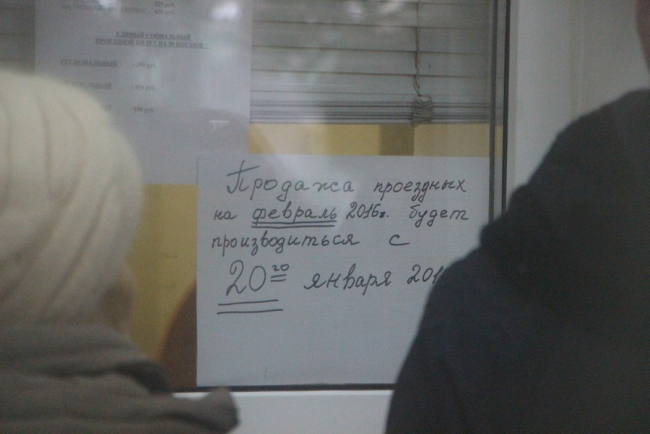 ЕДИНЫЙ СОЦИАЛЬНЫЙ
ПРОЕЗДНОЙ БИЛЕТ
Продажа проездных
на февраль 2016г. будет
производиться с
20го января 201